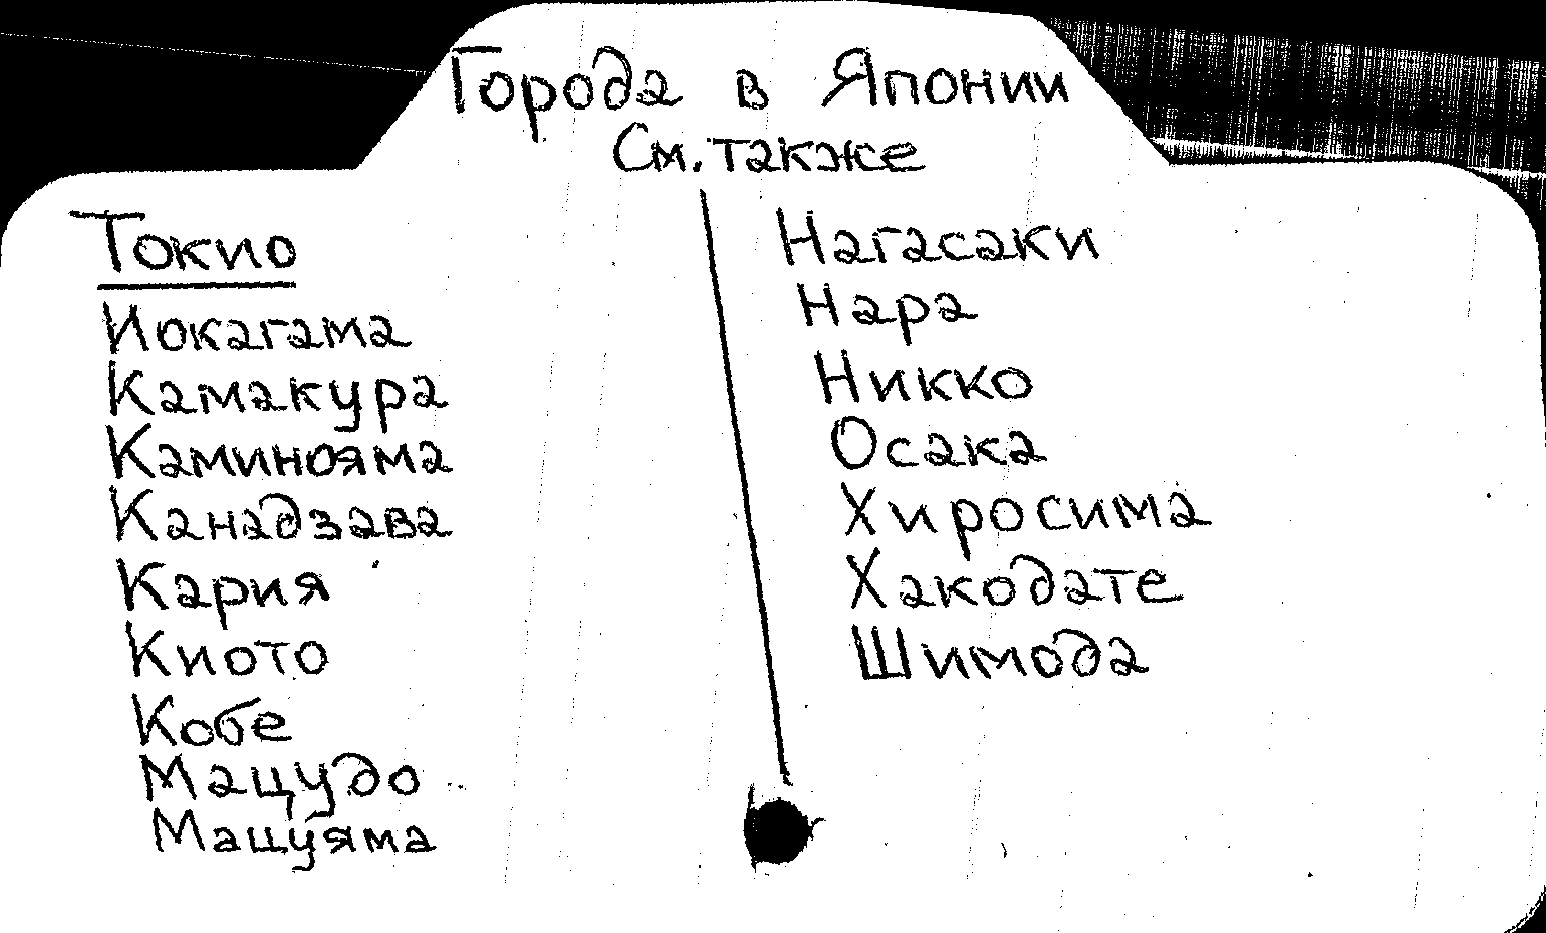 Города в Японии
См. также
Токио
Иокагама
Камакура
Каминояма
Канадзава
Кария
Киото
Кобе
Мацудо
Мацуяма
Нагасаки
Нара
Никко
Осака
Хиросима
Хакодате
Шимода